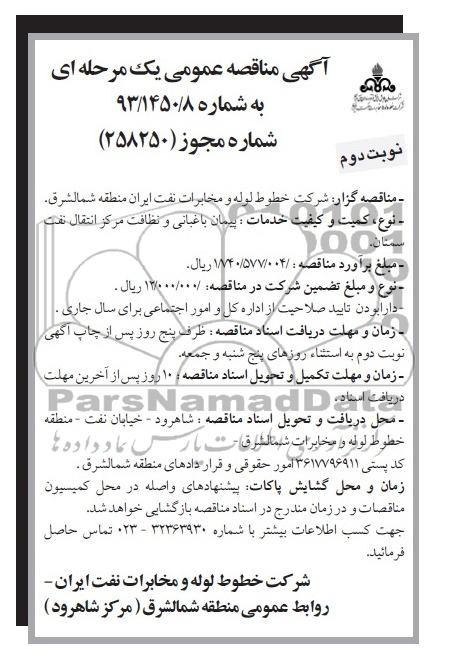 آگهی مناقصه عمومی یک مرحله ای
به شماره ۹۳/۱۴۵۰/۸
شماره مجوز (۲۵۸۲۵۰)
نوبت دوم
- مناقصه گزار: شرکت خطوط لوله و مخابرات نفت ایران منطقه شمالشرق.
- نوع، کمیت و کیفیت خدمات : پیمان باغبانی و نظافت مرکز انتقال نفت
سمنان.
- مبلغ برآورد مناقصه : /۱۷۴۰/۵۷۷/۰۰۴ ریال.
- نوع و مبلغ تضمین شرکت در مناقصه: /۱۲/۰۰۰/۰۰۰ ریال.
- دارابودن تایید صلاحیت از اداره کل و امور اجتماعی برای سال جاری .
- زمان و مهلت دریافت اسناد مناقصه : ظرف پنج روز پس از چاپ آگهی
نوبت دوم به استثناء روزهای پنج شنبه و جمعه.
- زمان و مهلت تکمیل و تحویل اسناد مناقصه : ۱۰ روز پس از آخرین مهلت
دریافت اسناد .
ParsNamadData
- محل دریافت و تحویل اسناد مناقصه : شاهرود - خیابان نفت - منطقه
خطوط لوله و مخابرات شمالشرق -
کد پستی ۳۶۱۷۷۹۶۹۱۱ امور حقوقی و قراردادهای منطقه شمالشرق .
زمان و محل گشایش پاکات: پیشنهادهای واصله در محل کمیسیون
مناقصات و در زمان مندرج در اسناد مناقصه بازگشایی خواهد شد.
جهت کسب اطلاعات بیشتر با شماره ۳۲۳۶۳۹۳۰ - ۰۲۳ تماس حاصل
فرمائید.
شرکت خطوط لوله و مخابرات نفت ایران -
روابط عمومی منطقه شمالشرق ( مرکز شاهرود )